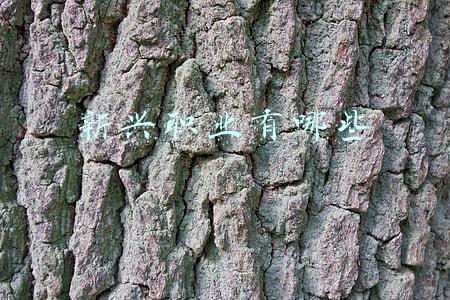 新兴职业有哪些